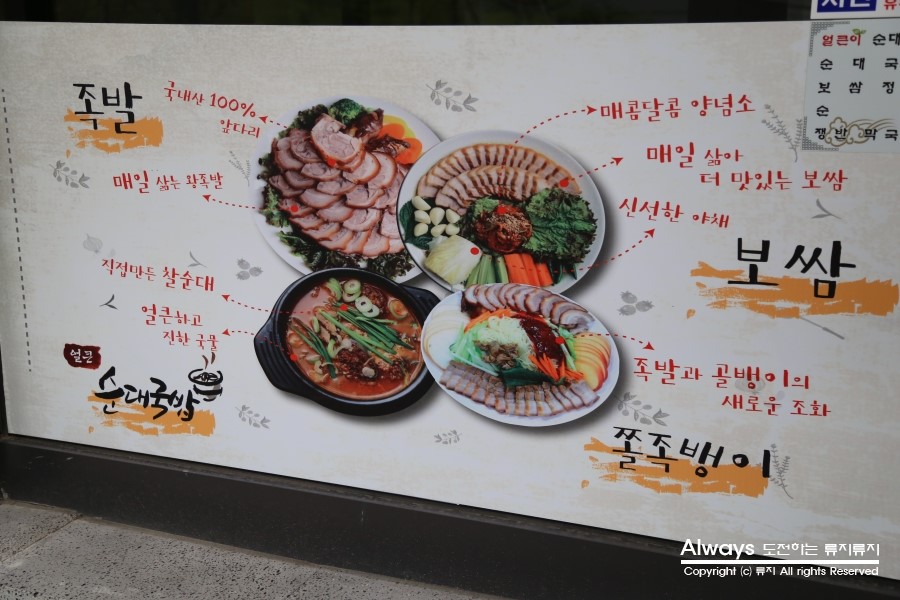 족발
국내산 100%
앞다리
매일 삶는 왕족발
매콤달콤 양념소
매일 삶아
더 맛있는 보쌈
신선한 야채
보쌈
직접만든 찰순대
얼큰하고
진한 국물
얼큰
순대국밥
족발과 골뱅이의
새로운 조화
쫄족뱅이
얼큰이 순대
순 대 국
보 쌈 정
순
쟁반 막국
Always 도전하는 류지류지
Copyright (c) 류지 All rights Reserved